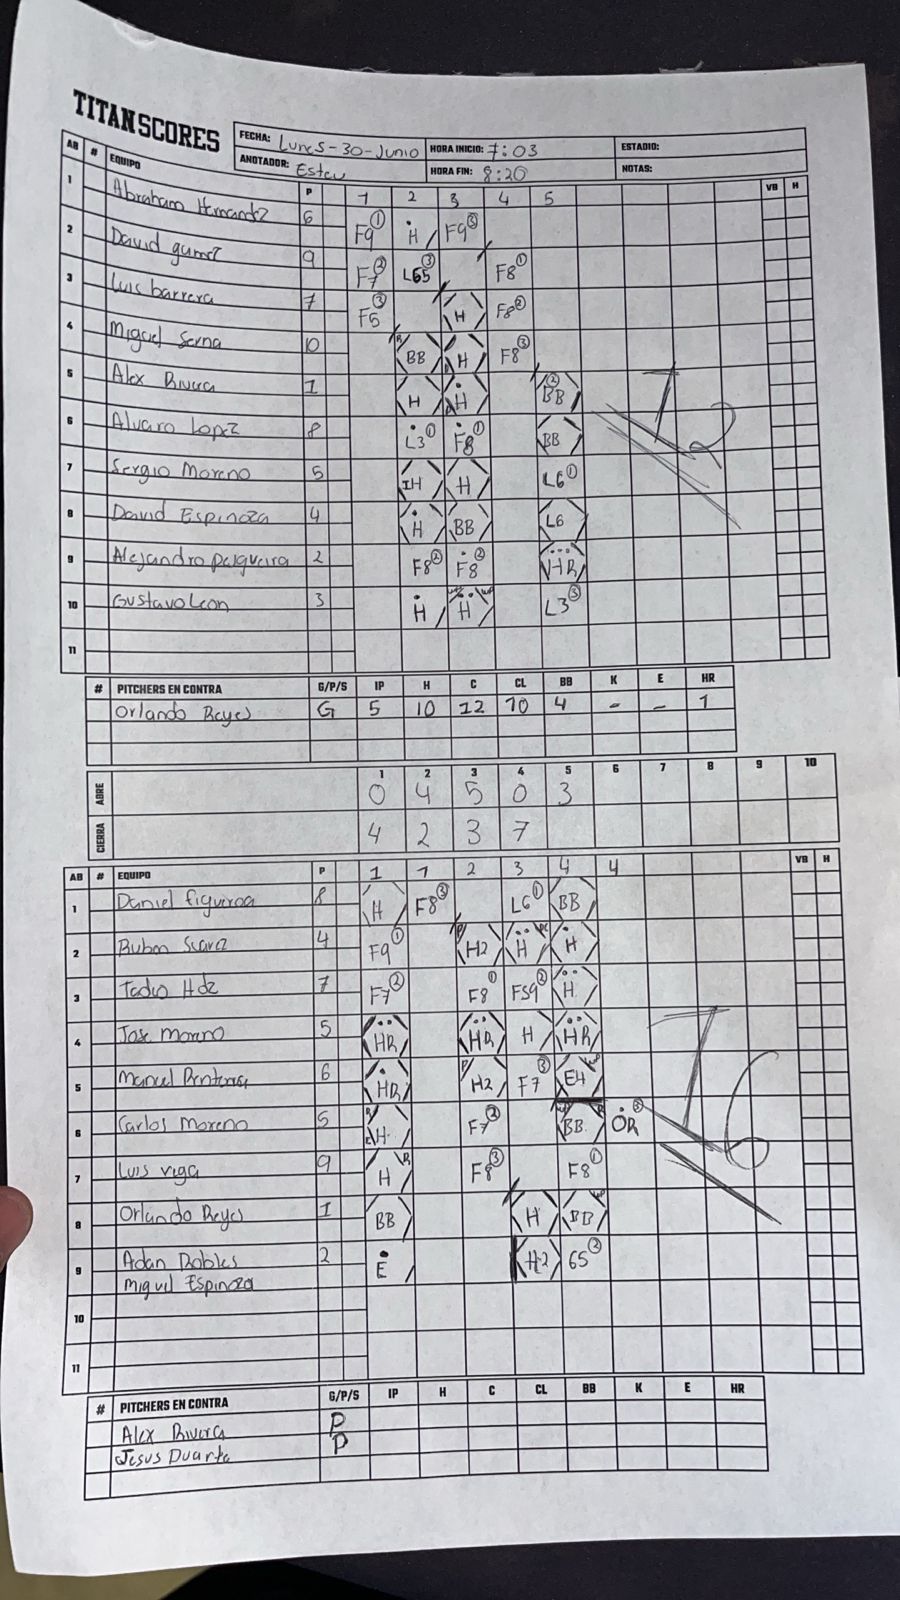 TITANSCORES
FECHA: Lunes-30-Junio HORA INICIO: 7:03 ESTADIO:
ANOTADOR: Estev HORA FIN: 8:20 NOTAS:
AB # EQUIPO P 1 2 3 4 5 VB H
1 Abraham Hernandez 6 F9① H F9③
2 David gamez 9 F7② L65③ F8①
3 Luis barrera 7 F5③ H F8②
4 Miguel Serna 10 BB H F8③
5 Alex Rivera 1 H H BB
6 Alvaro Lopez 8 L3① F8① BB
7 Sergio Moreno 5 IH H L6①
8 David Espinoza 4 H BB L6
9 Alejandro 2 F8② F8② HR
10 Gustavo Leon 3 H H L3③
11
12
# PITCHERS EN CONTRA G/P/S IP H C CL BB K E HR
Orlando Reyes G 5 10 12 10 4 - - 1
1 2 3 4 5 6 7 8 9 10
ABRE 0 4 5 0 3
CIERRA 4 2 3 7
AB # EQUIPO P 1 1 2 3 4 4 VB H
1 Daniel figueroa 8 H F8③ L6① BB
2 Ruben Suarez 4 F9① H2 H H
3 Tadeo Hdz 7 F7② F8① FS9② H
4 Jose Moreno 5 HR HR H HR
5 Manuel 6 HR H2 F7③ E4
6 Carlos Moreno 5 H F7② BB OR③
7 Luis vega 9 H F8③ F8①
8 Orlando Reyes 1 BB H BB
9 Adan Robles 2 E H2 65②
Miguel Espinoza
10
11
16
# PITCHERS EN CONTRA G/P/S IP H C CL BB K E HR
Alex Rivera P
Jesus Duarte P